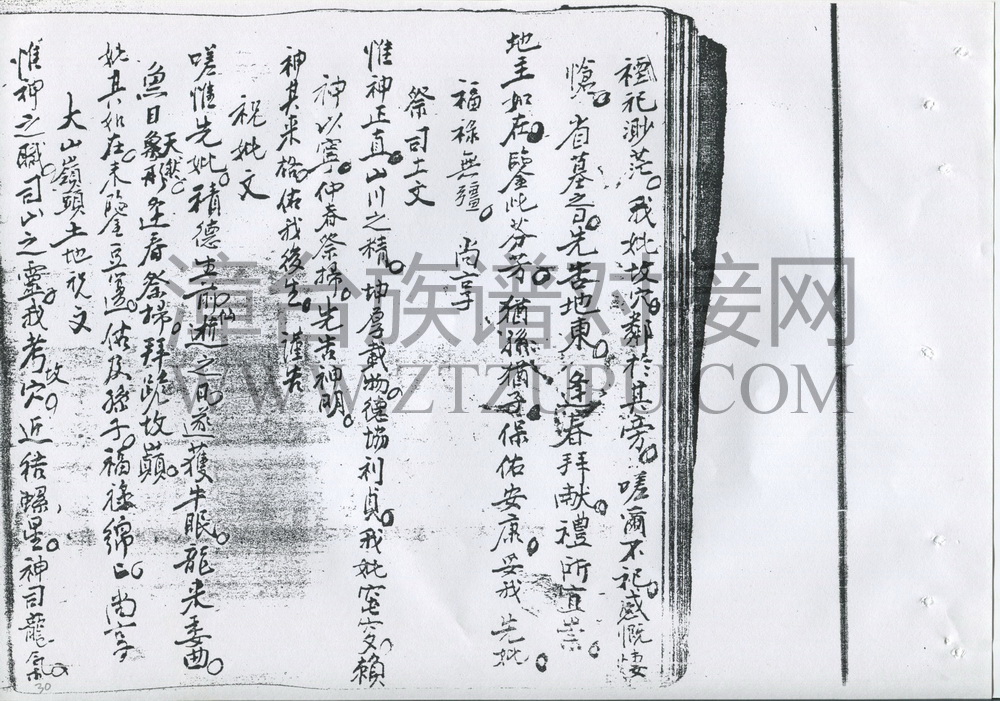 禋祀渺茫。我妣坟穴。鄰於其旁。嗟爾不祀。感慨悽
愴。省墓之日。先告地東。逢春拜献。禮所宜崇
地主如在。鑒此芬芳。猶孫猶子。保佑安康。妥我先妣。
福祿無疆。尚享
祭司土文
惟神正直。山川之精。坤厚載物。德協利貞。我妣窀穸賴
神以寧。仲春祭掃。先告神明。
神其来格。佑我後生。謹告
祝妣文
嗟惟先妣。積德生前。仙逝之日。遂獲牛眠。龍来委曲。
魚日天然。象形 逢春祭掃。拜跪坟巔。
妣其如在。来鑒豆籩。俵及孫子。福祿綿亡。尚享
大山嶺頭土地祝文
惟神之職。司山之靈。我考坟穴。近结螺星。神司龍氣。
30
漳台族谱对接网
WWW.ZTZUPU.COM